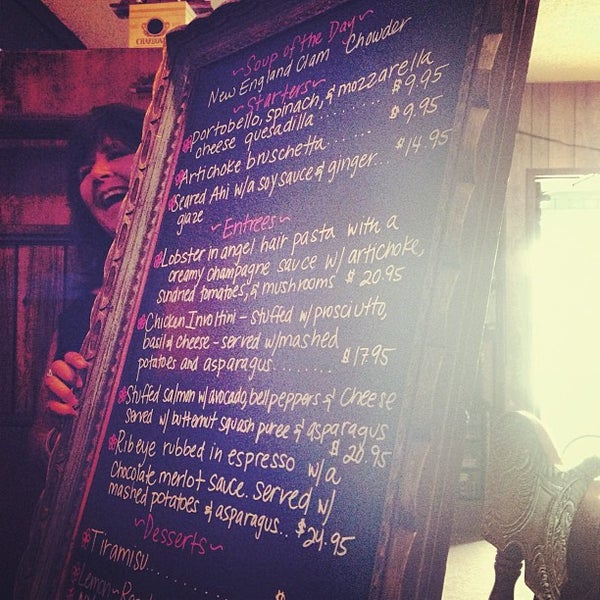 ~Soup of the Day~
New England Clam Chowder
~Starters~
Portobello, spinach, & mozzarella
cheese quesadilla......... $9.95
Artichoke bruschetta...... $9.95
Seared Ahi w/a soy sauce & ginger... $14.95
glaze
~Entrees~
Lobster in angel hair pasta with a
creamy champagne sauce w/ artichoke,
sundried tomatoes, & mushrooms $20.95
Chicken Involtini - stuffed w/ prosciutto,
basil & cheese - served w/mashed
potatoes and asparagus........ $17.95
Stuffed salmon w/ avocado, bell peppers & Cheese
served w/ butternut squash puree & asparagus
$20.95
Ribeye rubbed in espresso w/a
Chocolate merlot sauce. served w/
mashed potatoes & asparagus... $24.95
~Desserts~
Tiramisu
Lemon